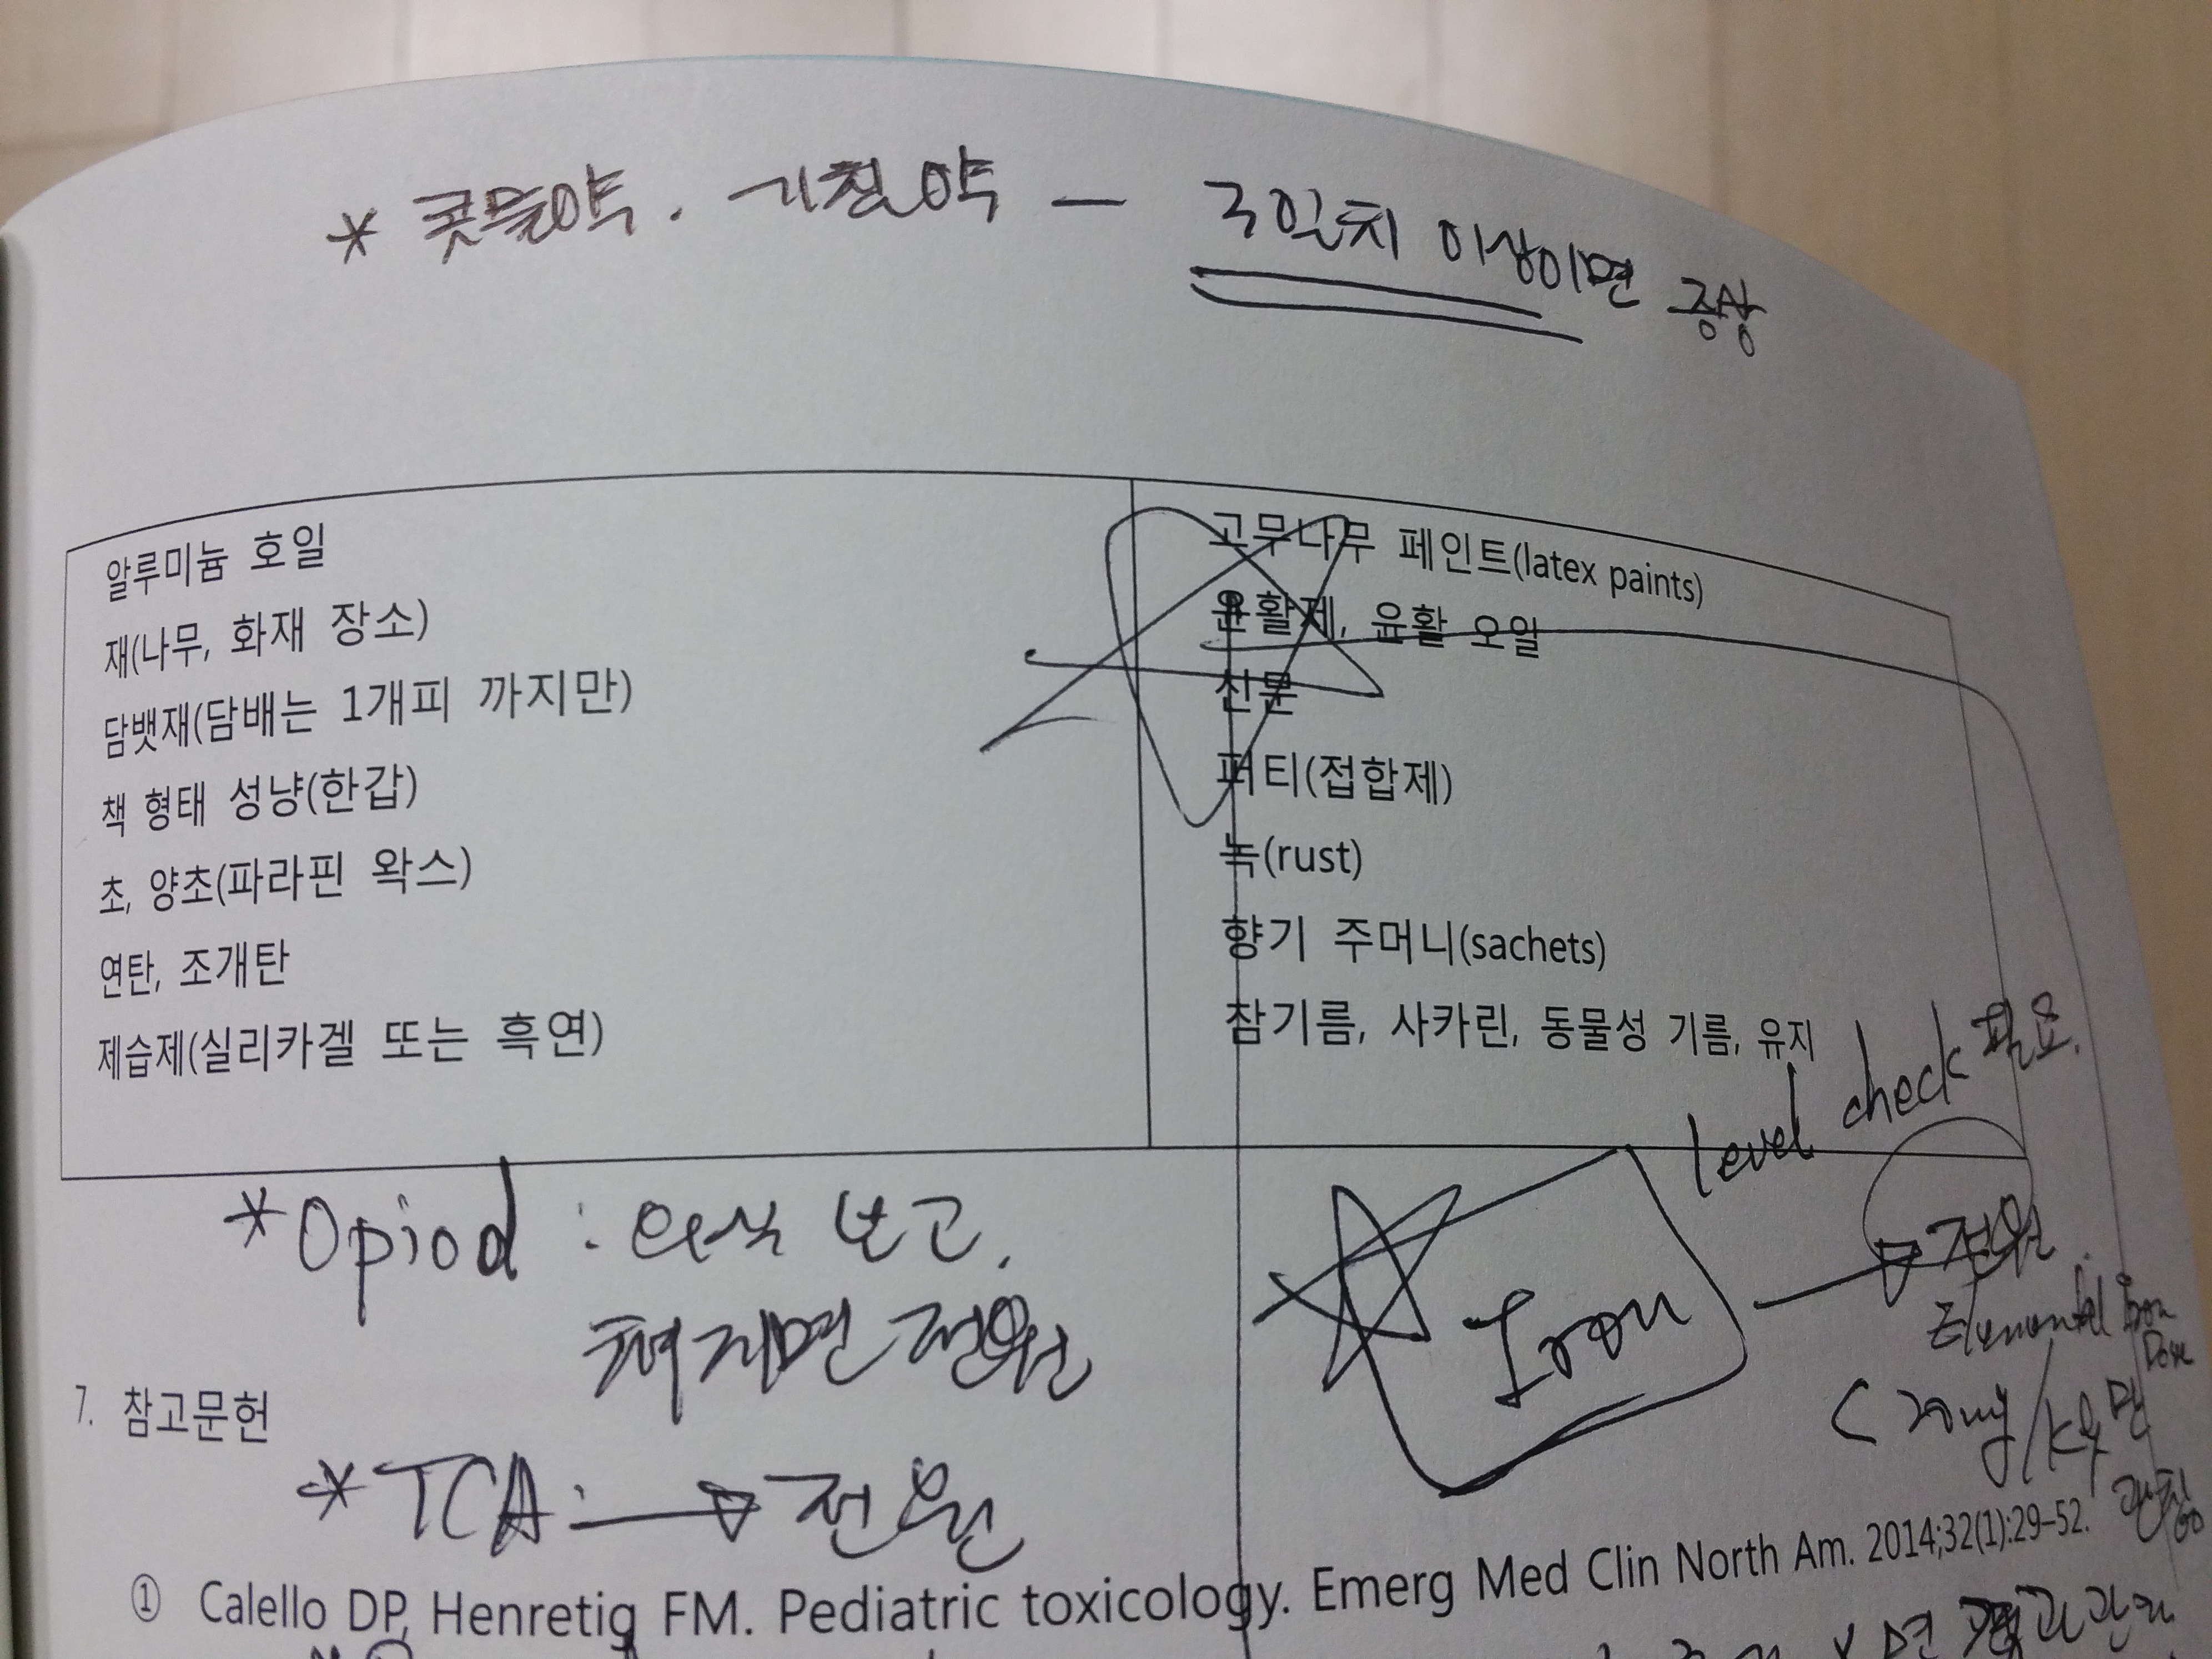 * 콧물약. 기침약 — 3일치 이상이면 증상
알루미늄 호일
재(나무, 화재 장소)
담뱃재(담배는 1개피 까지만)
책 형태 성냥(한갑)
초, 양초(파라핀 왁스)
연탄, 조개탄
제습제(실리카겔 또는 흑연)
고무나무 페인트(latex paints)
윤활제, 윤활 오일
신문
퍼티(접합제)
녹(rust)
향기 주머니(sachets)
참기름, 사카린, 동물성 기름, 유지
level check 필요.
*Opiod : 의식 보고.
쳐지면 전원
Iron → 전원
Elemental Iron Dose
< 20mg/kg 면
관찰
7. 참고문헌
*TCA: → 전원
① Calello DP, Henretig FM. Pediatric toxicology. Emerg Med Clin North Am. 2014;32(1):29–52.
면 경과관찰